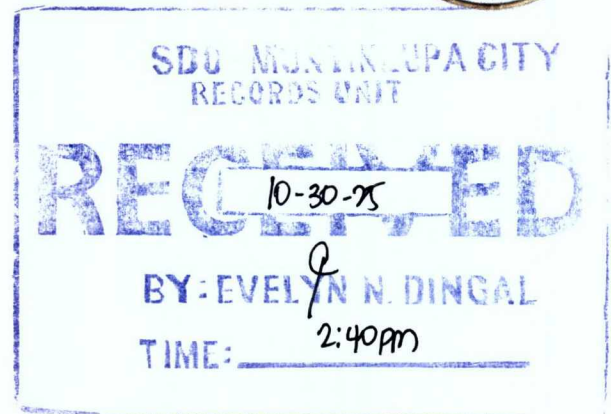 SDO MUNTINLUPA CITY
RECORDS UNIT
RECEIVED
10-30-25
BY: EVELYN N. DINGAL
2:40pm
TIME: